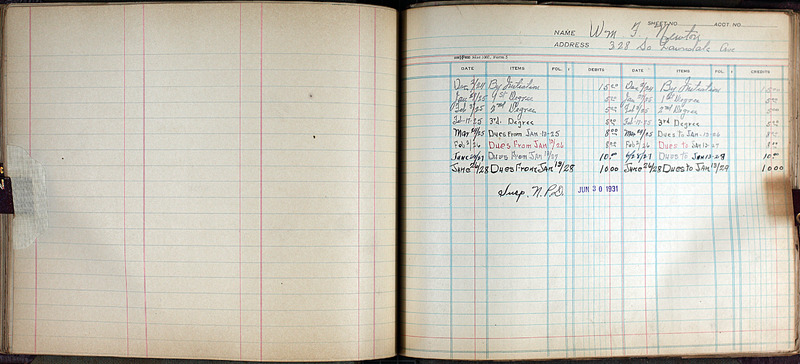 SHEET NO. ACCT. NO.
NAME Wm F. Newton
ADDRESS 328 So Lawndale Ave
DATE ITEMS FOL. DEBITS DATE ITEMS FOL. CREDITS
Dec 9/24 By Initiation 15 00 Dec 9/24 By Initiation 15 00
Jan 1st Degree 5 00 Jan 1st Degree 5 00
Feb 3/25 2nd Degree 5 00 2nd Degree 5 00
Feb-17-25 3rd Degree 5 00 Feb-17-25 3rd Degree 5 00
Mar Dues From Jan-12-25 8 00 Mar Dues To Jan-12-26 8 00
Feb 2/26 Dues From Jan 12/26 8 00 Feb 2/26 Dues to Jan 12-27 8 00
June 28/27 Dues From Jan 12/27 10.00 6/28/27 Dues to Jan 12-28 10.00
June 26/28 Dues From Jan 12/28 10 00 June 26/28 Dues to Jan 12/29 10 00
Susp. N.P.D. JUN 30 1931